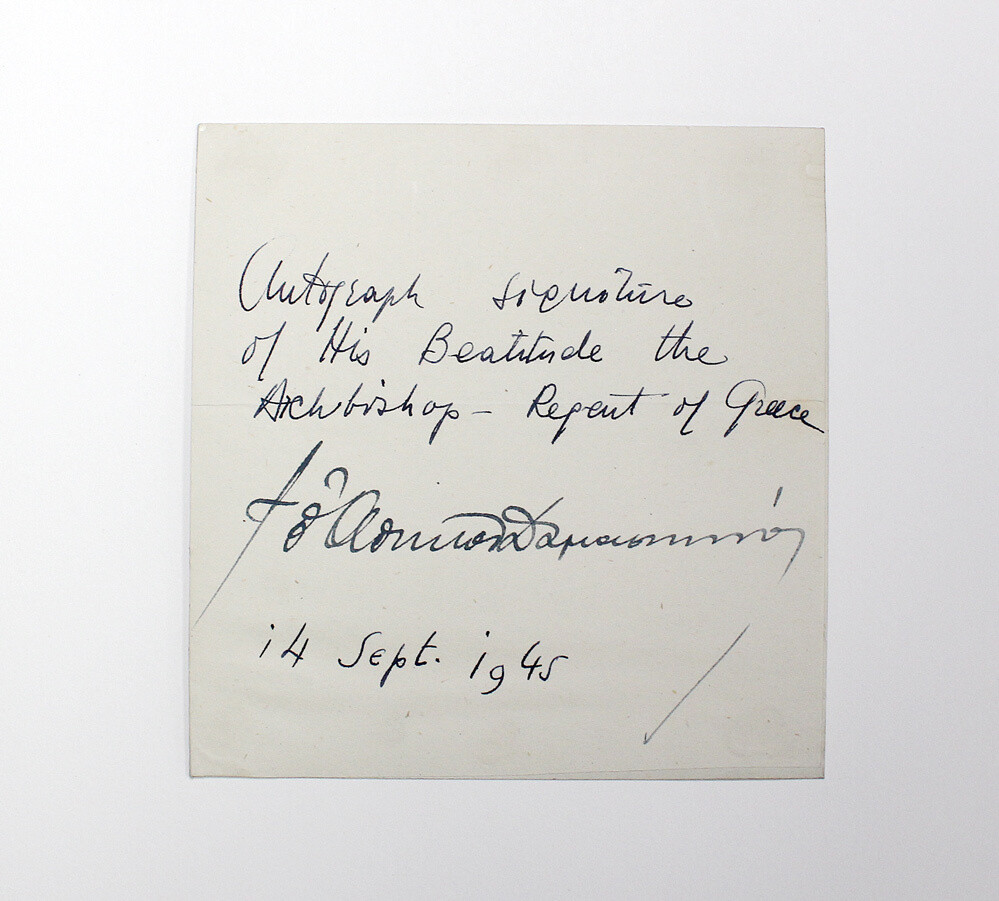 Autograph signature
of His Beatitude the
Archbishop - Regent of Greece
† ὁ Ἀθηνῶν Δαμασκηνός
14 Sept. 1945